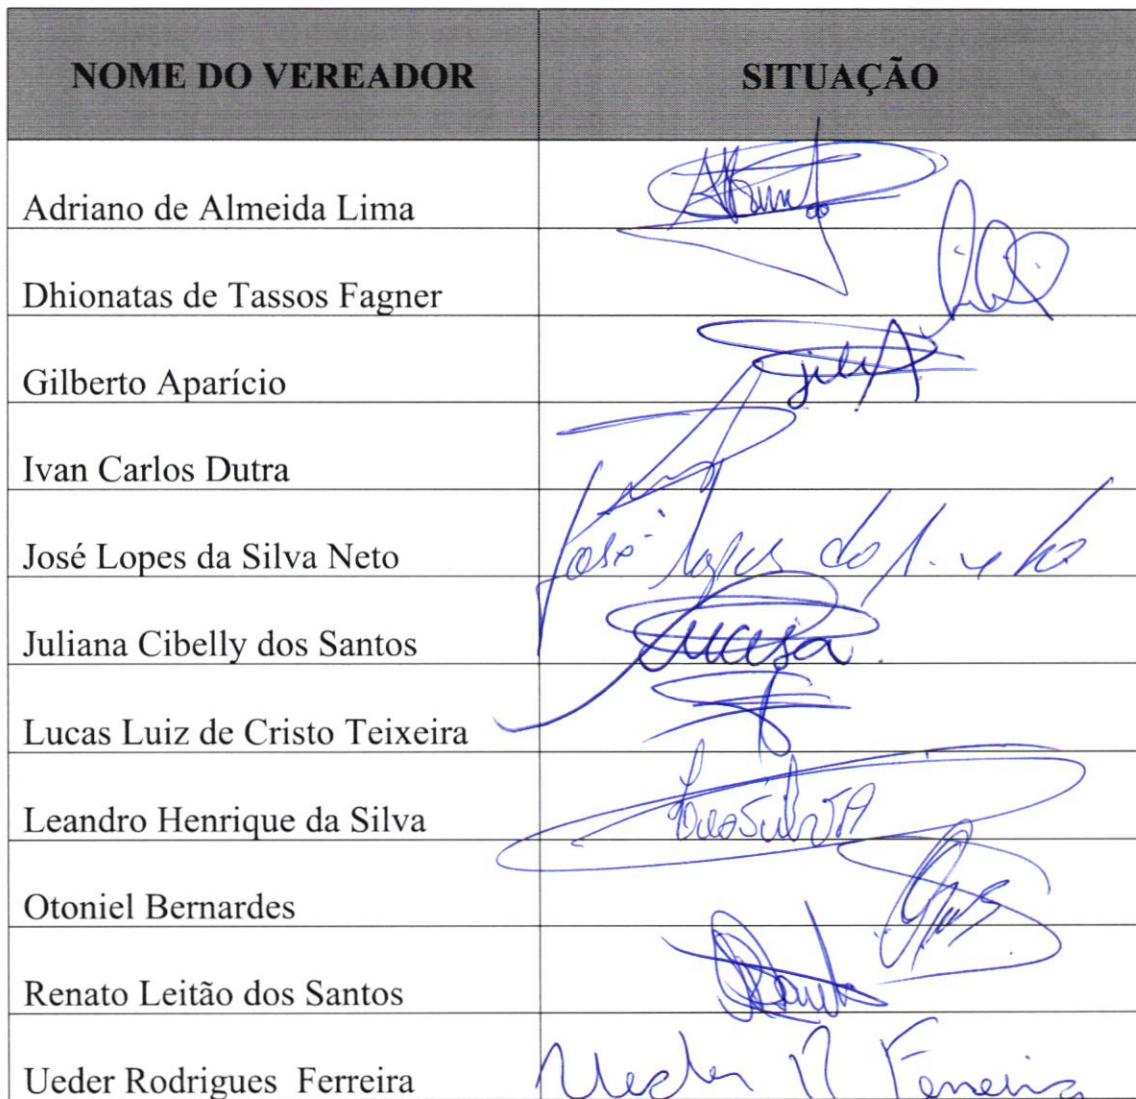 NOME DO VEREADOR SITUAÇÃO
Adriano de Almeida Lima
Dhionatas de Tassos Fagner
Gilberto Aparício
Ivan Carlos Dutra
José Lopes da Silva Neto José Lopes da
Juliana Cibelly dos Santos
Lucas Luiz de Cristo Teixeira
Leandro Henrique da Silva
Otoniel Bernardes
Renato Leitão dos Santos
Ueder Rodrigues Ferreira Ueder R Ferreira